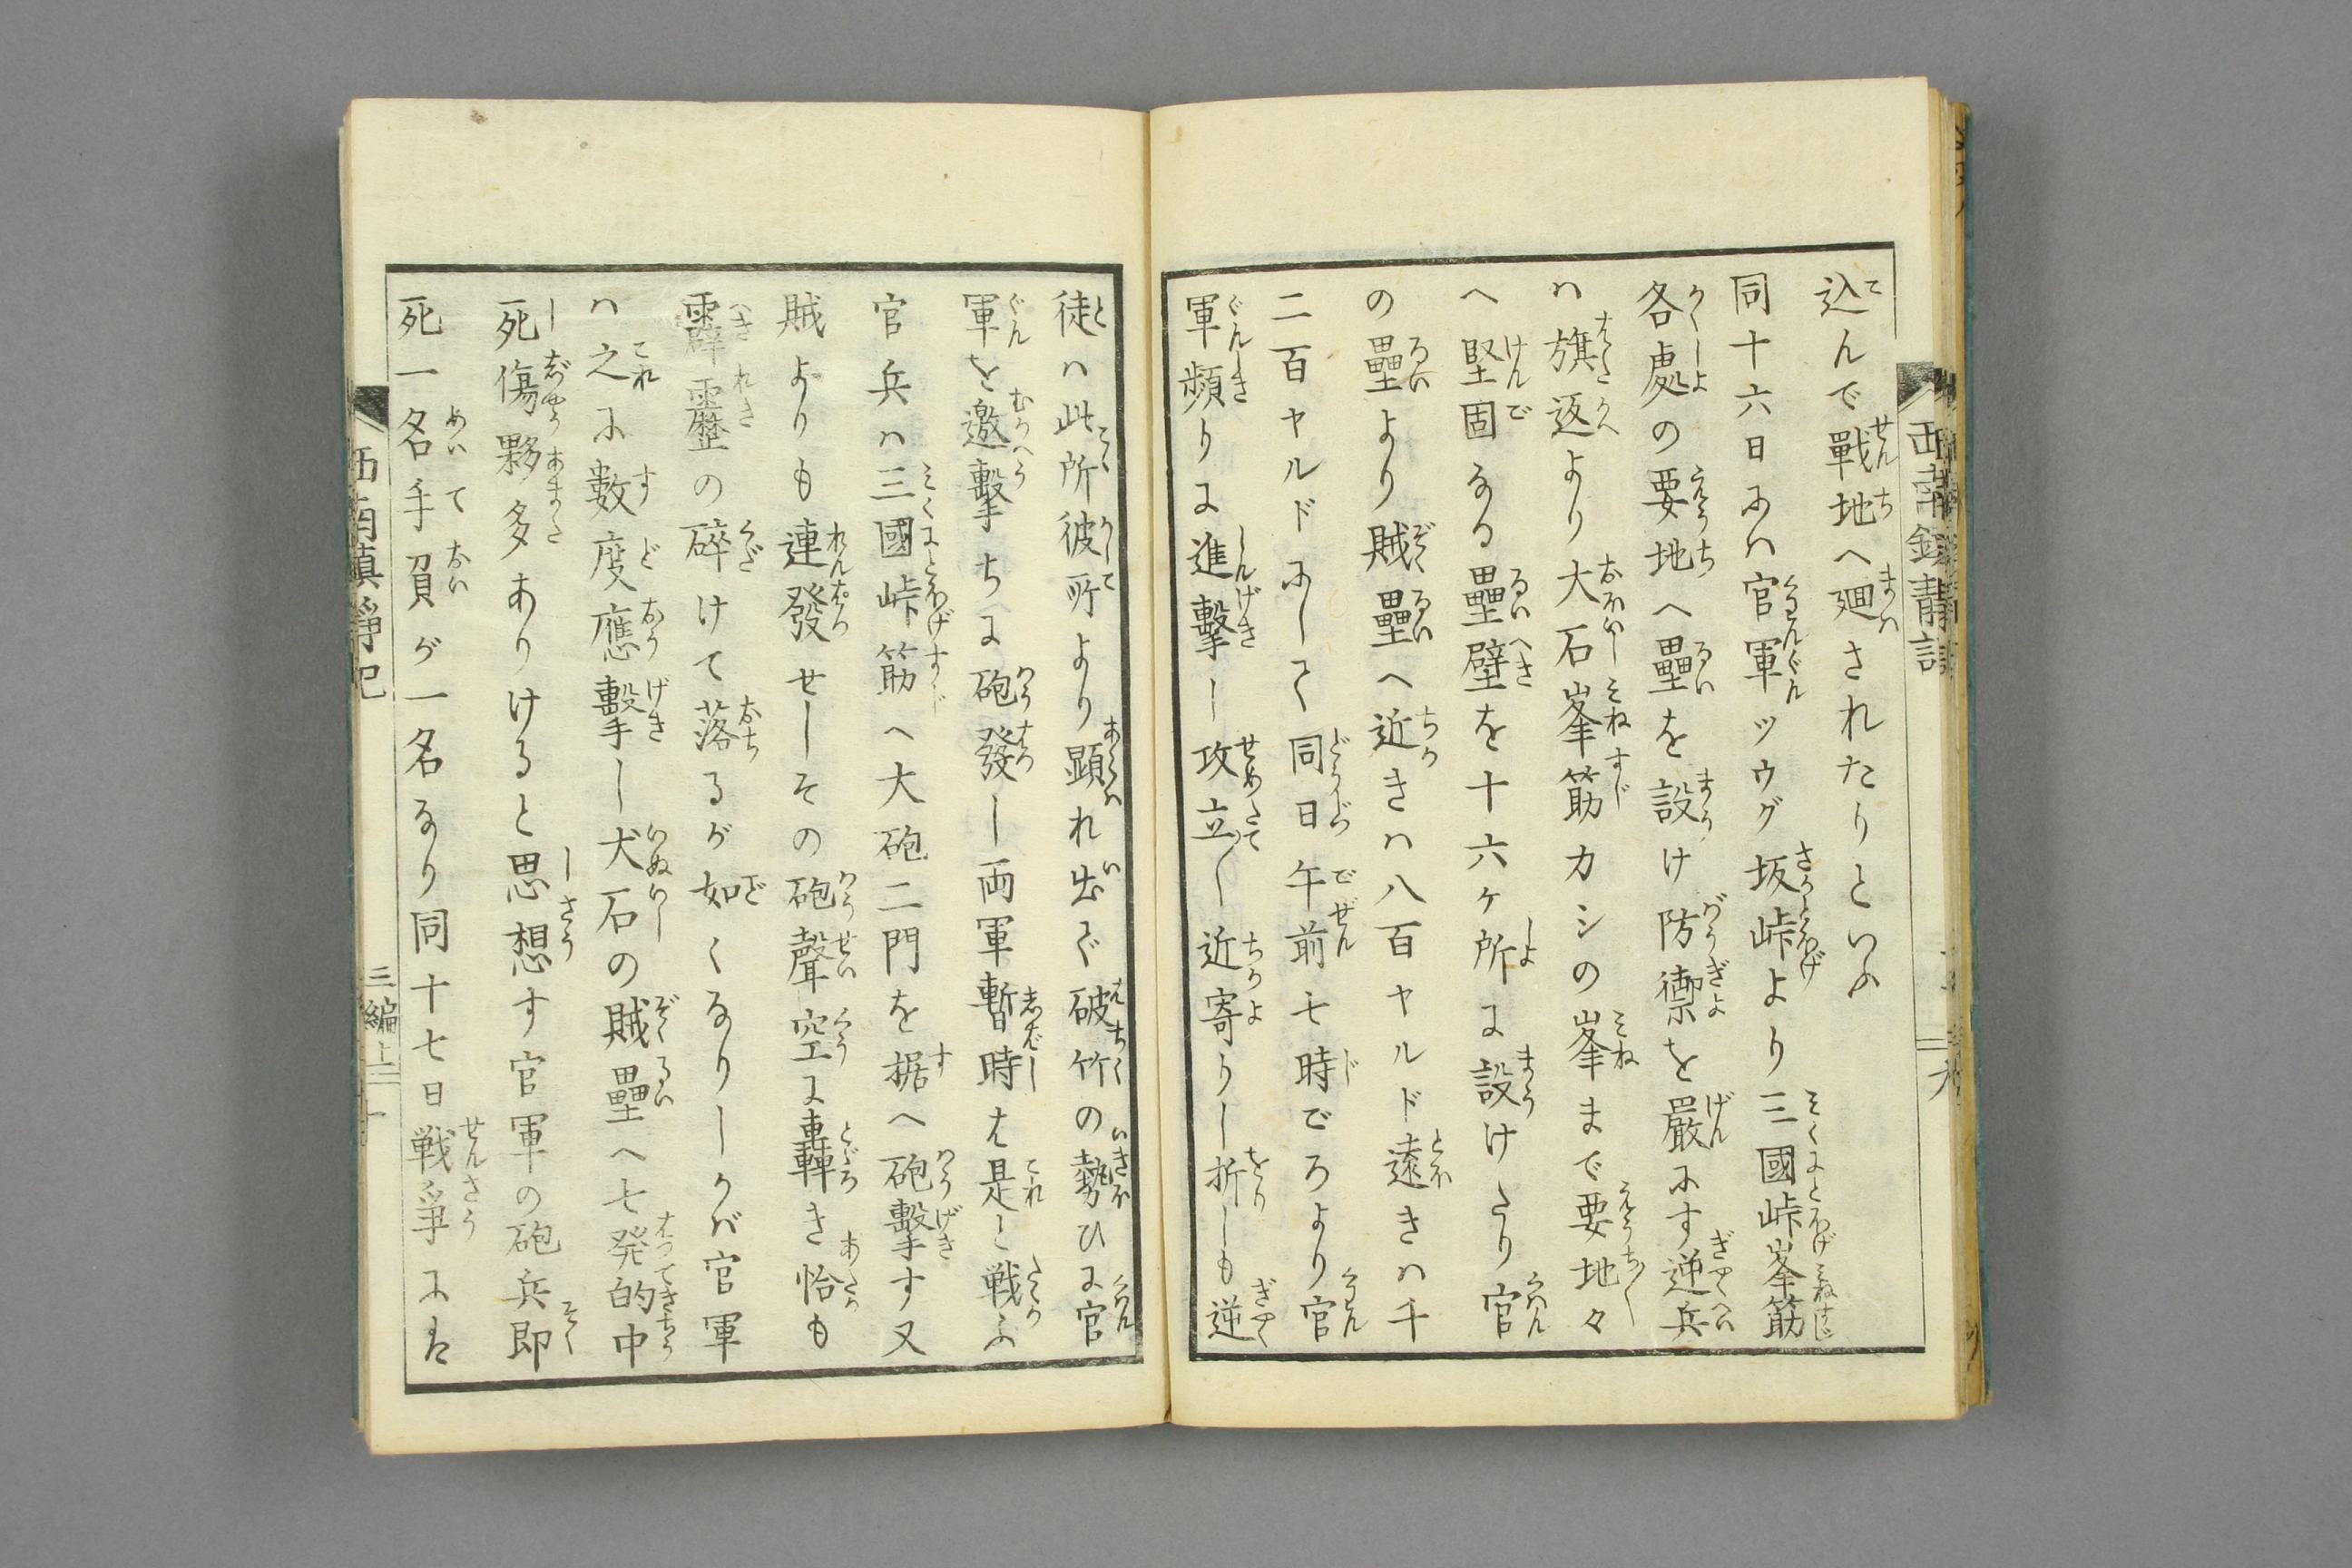 込んで戰地へ廻されたりといふ
同十六日にハ官軍ツウグ坂峠より三國峠峯筋
各處の要地へ壘を設け防禦を嚴にす逆兵
ハ旗返より大石峯筋カシの峯まで要地々
へ堅固なる壘壁を十六ヶ所に設けたり官
の壘より賊壘へ近きハ八百ヤルド遠きハ千
二百ヤルドにして同日午前七時ごろより官
軍頻りに進擊し攻立〱近寄りし折しも逆
徒ハ此所彼所より顕れ出で破竹の勢ひに官
軍を邀擊ちに砲發し両軍暫時は是と戦ふ
官兵ハ三國峠筋へ大砲二門を据へ砲擊す又
賊よりも連發せしその砲聲空に轟き恰も
霹靂の碎けて落るが如くなりしかバ官軍
ハ之に數度應擊し犬石の賊壘へ七発的中
し死傷夥多ありけると思想す官軍の砲兵即
死一名手負が一名なり同十七日戦爭には
西南鎮靜記
三編上
十